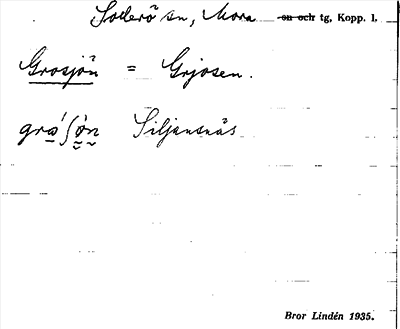 Soderö sn, Mora sn och tg, Kopp. l.
Grosjön = Grjosen.
gro´ʃøn Siljansnäs
Bror Lindén 1935.